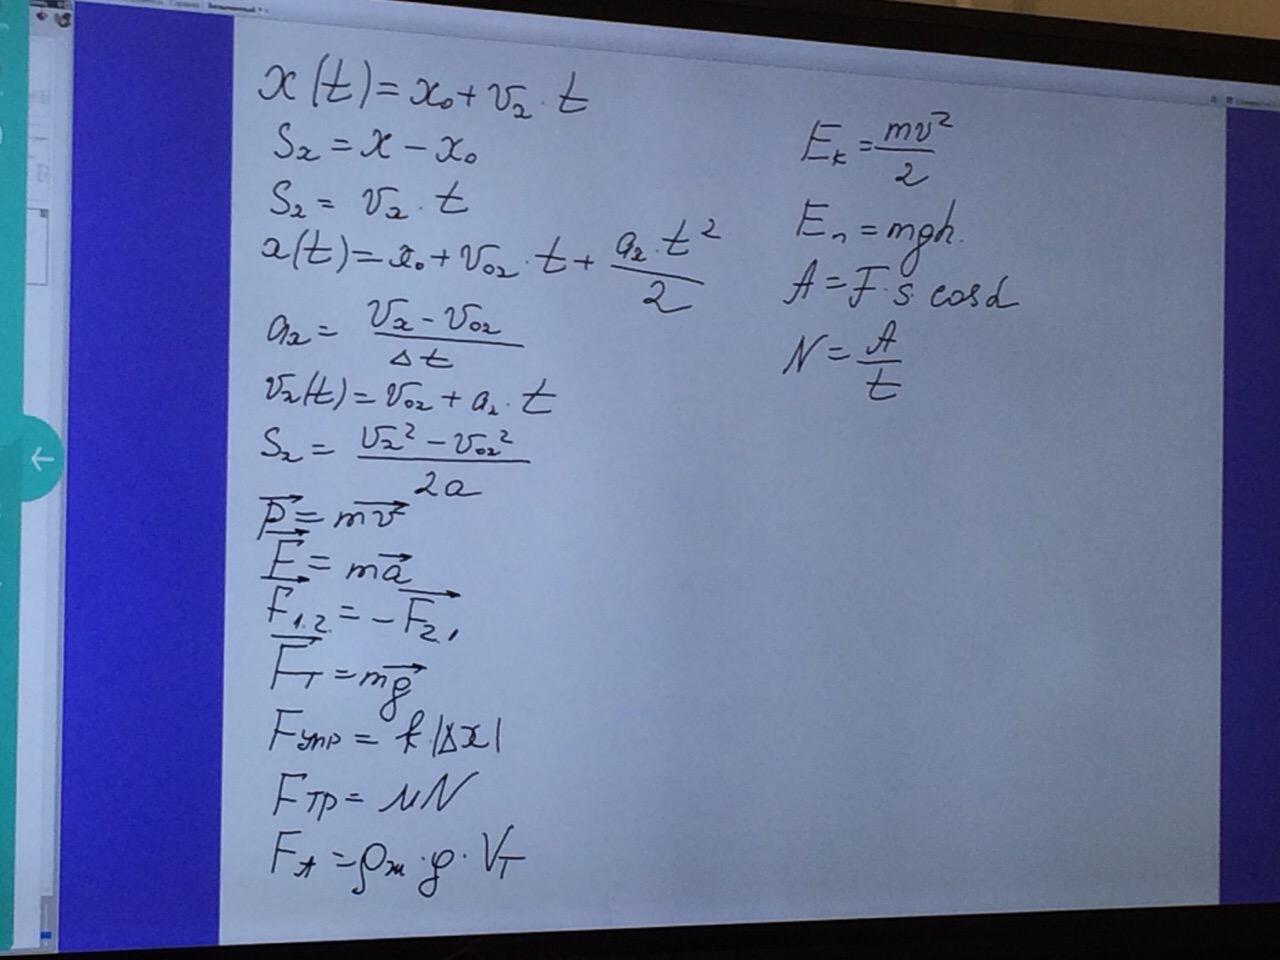 x(t) = x₀ + vₓ · t
Sₓ = x − x₀
Sₓ = vₓ · t
x(t) = x₀ + v₀ₓ · t + aₓ · t² / 2
aₓ = vₓ − v₀ₓ / Δt
vₓ(t) = v₀ₓ + aₓ · t
Sₓ = vₓ² − v₀ₓ² / 2a
p⃗ = mv⃗
F⃗ = ma⃗
F⃗₁.₂ = −F⃗₂,
F⃗т = mg⃗
Fупр = k|Δx|
Fтр = μN
FА = ρж · g · Vт
Eₖ = mv² / 2
Eп = mgh.
A = F · s · cos α
N = A / t